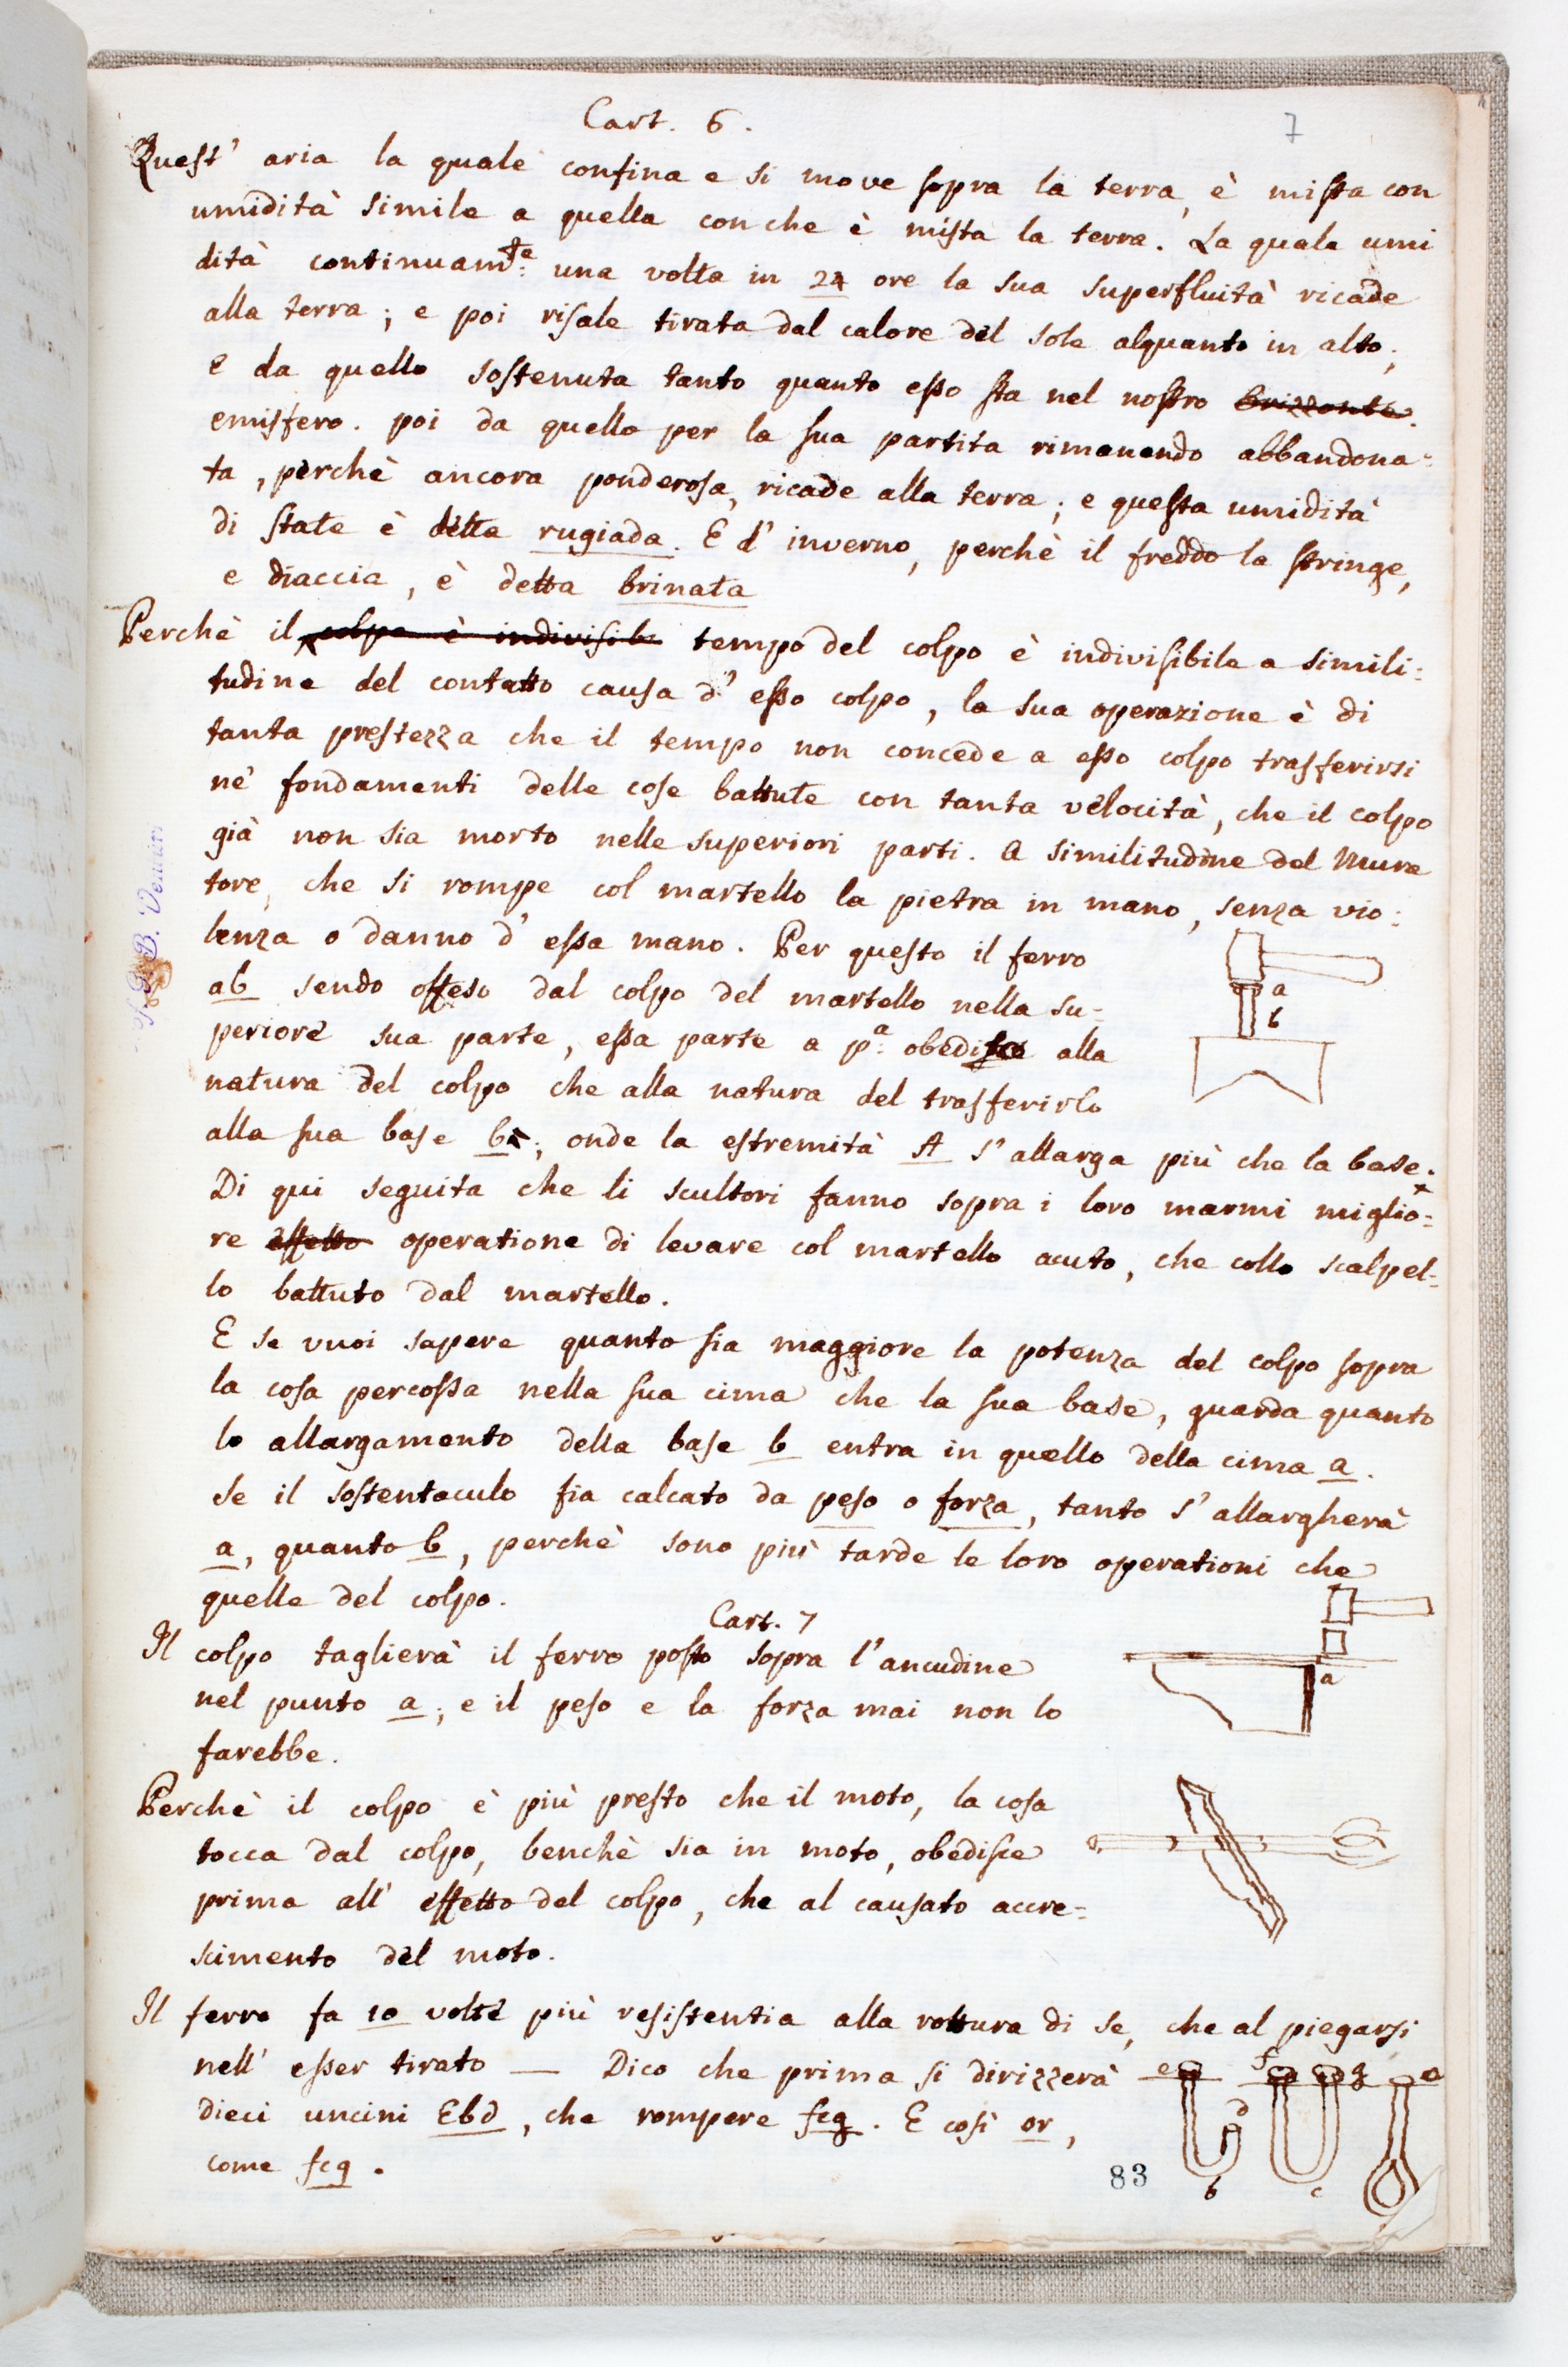 Cart. 6.
7
Quest' aria la quale confina e si move sopra la terra, è mista con
umidità simile a quella con che è mista la terra. La quale umi
dità continuam.te una volta in 24 ore la sua superfluità ricade
alla terra; e poi risale tirata dal calore del sole alquanto in alto;
e da quello sostenuta tanto quanto esso sta nel nostro orizzonte.
emisfero. poi da quello per la sua partita rimanendo abbandona=
ta, perchè ancora ponderosa, ricade alla terra; e questa umidità
di state è detta rugiada. E d' inverno, perchè il freddo la stringe,
e diaccia, è detta brinata
Perchè il colpo è indivisib tempo del colpo è indivisibile a simili=
tudine del contatto causa d' esso colpo, la sua operazione è di
tanta prestezza che il tempo non concede a esso colpo trasferirsi
ne' fondamenti delle cose battute con tanta velocità, che il colpo
già non sia morto nelle superiori parti. A similitudine del Mura
tore, che si rompe col martello la pietra in mano, senza vio=
lenza o danno d' essa mano. Per questo il ferro
ab sendo offeso dal colpo del martello nella su=
periore sua parte, essa parte a p.a obedisce alla
natura del colpo che alla natura del trasferirlo
alla sua base b; onde la estremità A s' allarga più che la base.
Di qui seguita che li scultori fanno sopra i loro marmi miglio=
re effetto operatione di levare col martello acuto, che collo scalpel=
lo battuto dal martello.
E se vuoi sapere quanto sia maggiore la potenza del colpo sopra
la cosa percossa nella sua cima che la sua base, guarda quanto
lo allargamento della base b entra in quello della cima a.
Se il sostentaculo fia calcato da peso o forza, tanto s' allargherà
a, quanto b, perchè sono più tarde le loro operationi che
quelle del colpo.
Cart. 7
Il colpo taglierà il ferro posto sopra l' ancudine
nel punto a; e il peso e la forza mai non lo
farebbe.
Perchè il colpo è più presto che il moto, la cosa
tocca dal colpo, benchè sia in moto, obedisce
prima all' effetto del colpo, che al causato accre=
scimento del moto.
Il ferro fa 10 volte più resistentia alla rottura di se, che al piegarsi
nell' esser tirato — Dico che prima si dirizzerà
dieci uncini Ebd, che rompere fcg. E così or,
come fcg.
83
a
b
a
e
f
g
o
d
b
c